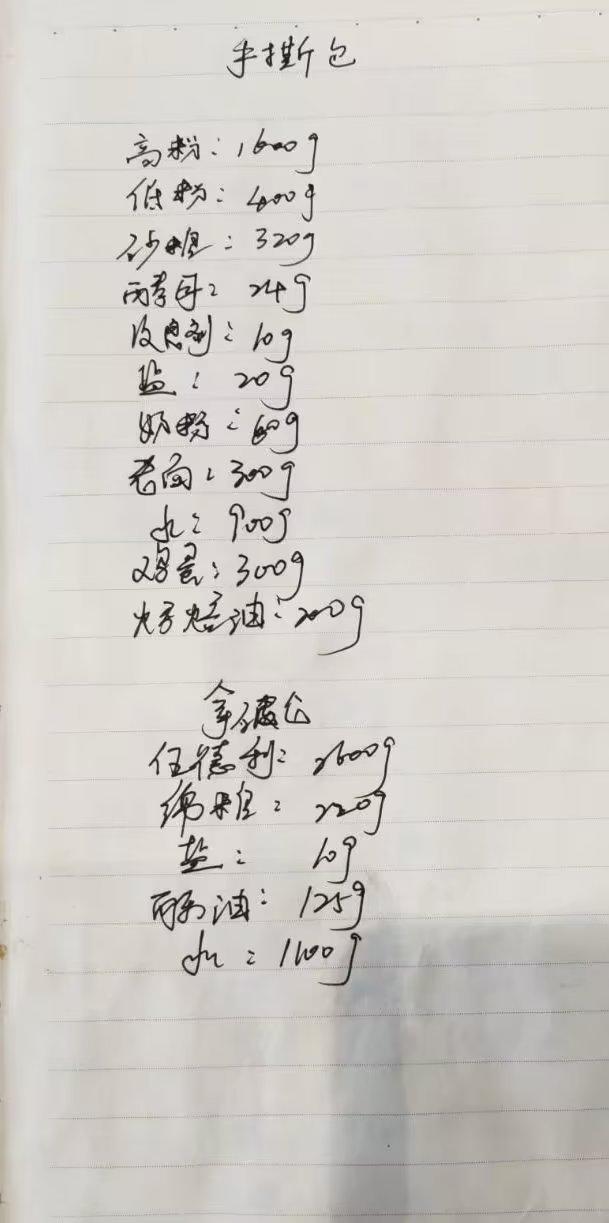 手撕包
高粉：1600g
低粉：400g
砂糖：320g
酵母：24g
改良剂：10g
盐：20g
奶粉：60g
老面：300g
水：900g
鸡蛋：300g
烘焙油：200g
拿破仑
伍德利：2600g
绵糖：220g
盐：10g
酥油：125g
水：1100g